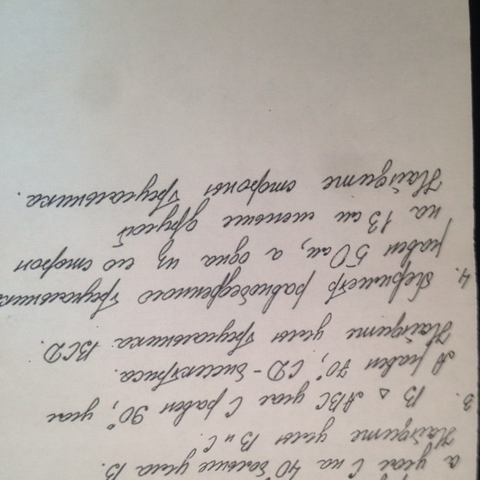 а угол C на 40° больше угла B.
Найдите углы B и C.
3. В △ ABC угол C равен 90°, угол
A равен 70°, CD - биссектриса.
Найдите углы треугольника BCD.
4. Периметр равнобедренного треугольника
равен 50 см, а одна из его сторон
на 13 см меньше другой
Найдите стороны треугольника.